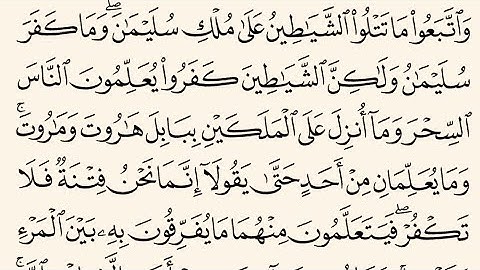 وَٱتَّبَعُوا۟ مَا تَتْلُوا۟ ٱلشَّيَـٰطِينُ عَلَىٰ مُلْكِ سُلَيْمَـٰنَ ۖ وَمَا كَفَرَ
سُلَيْمَـٰنُ وَلَـٰكِنَّ ٱلشَّيَـٰطِينَ كَفَرُوا۟ يُعَلِّمُونَ ٱلنَّاسَ
ٱلسِّحْرَ وَمَآ أُنزِلَ عَلَى ٱلْمَلَكَيْنِ بِبَابِلَ هَـٰرُوتَ وَمَـٰرُوتَ ۚ
وَمَا يُعَلِّمَانِ مِنْ أَحَدٍ حَتَّىٰ يَقُولَآ إِنَّمَا نَحْنُ فِتْنَةٌ فَلَا
تَكْفُرْ ۖ فَيَتَعَلَّمُونَ مِنْهُمَا مَا يُفَرِّقُونَ بِهِۦ بَيْنَ ٱلْمَرْءِ